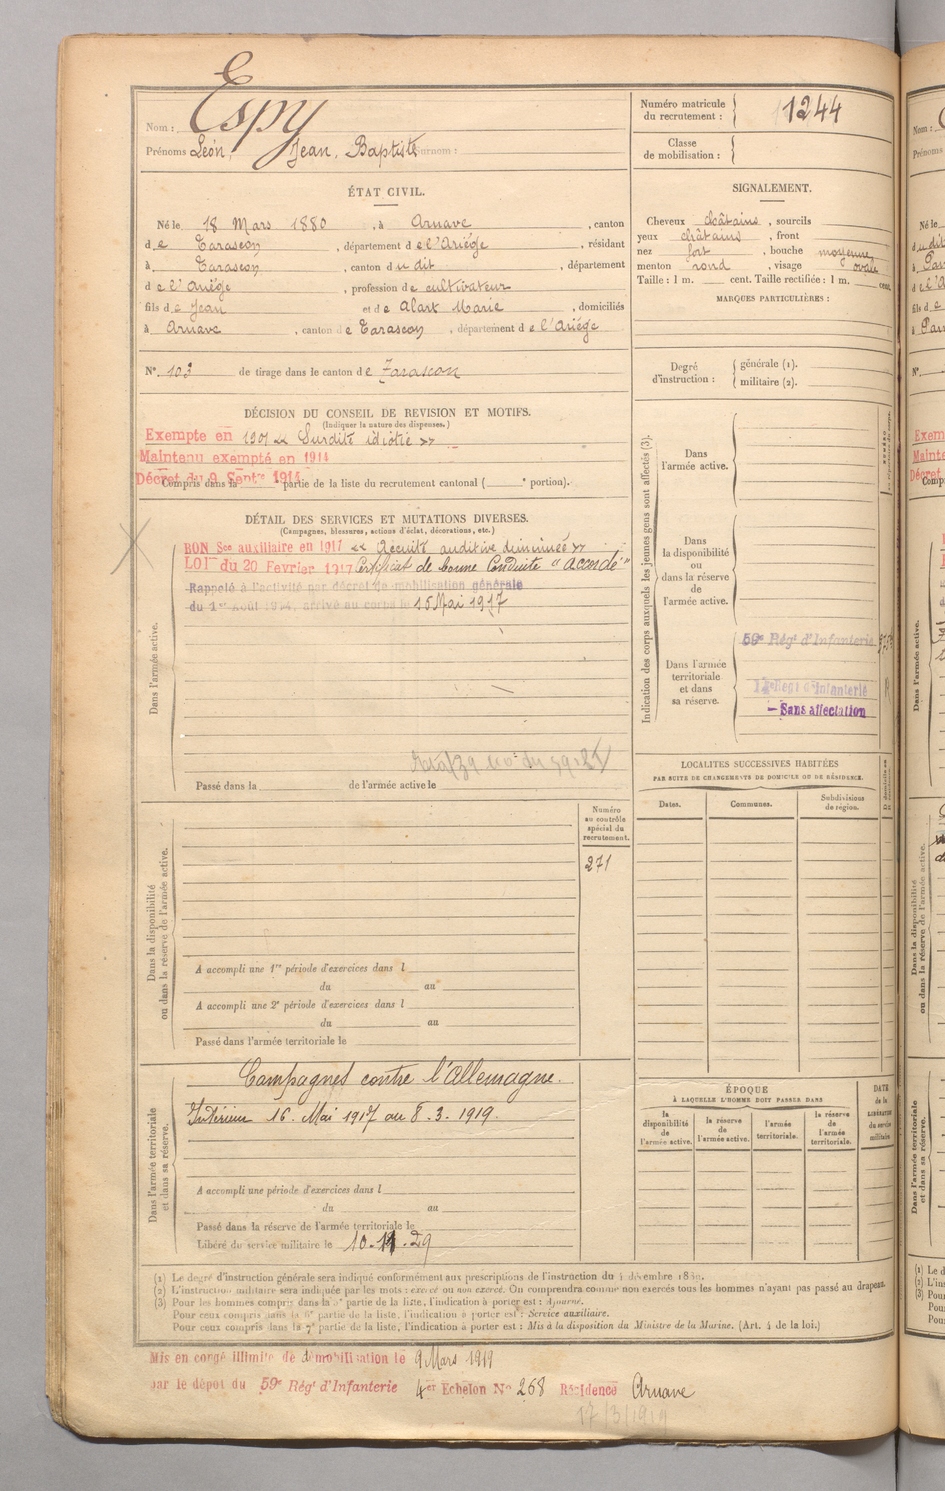 Nom : Espy
Prénoms Léon, Jean, Baptiste Surnom :
Numéro matricule du recrutement : 1244
Classe de mobilisation :
ÉTAT CIVIL.
Né le 18 Mars 1880, à Arnave, canton
de Tarascon, département de l'Ariége, résidant
à Tarascon, canton du dit, département
de l'Ariége, profession de cultivateur
fils de Jean et de Alart Marie, domiciliés
à Arnave, canton de Tarascon, département de l'Ariége
N° 103 de tirage dans le canton de Tarascon
SIGNALEMENT.
Cheveux châtains, sourcils
yeux châtains, front
nez fort, bouche moyenne,
menton rond, visage ovale
Taille : 1 m. cent. Taille rectifiée : 1 m. cent.
MARQUES PARTICULIÈRES :
Degré d'instruction : générale (1).
militaire (2).
DÉCISION DU CONSEIL DE REVISION ET MOTIFS.
(Indiquer la nature des dispenses.)
Exempté en 1901 « Surdité idiotie »
Maintenu exempté en 1914
Décret du 9 Septre 1914
Compris dans la e partie de la liste du recrutement cantonal ( e portion).
DÉTAIL DES SERVICES ET MUTATIONS DIVERSES.
(Campagnes, blessures, actions d'éclat, décorations, etc.)
BON Sce auxiliaire en 1917 « Accuité auditive diminuée »
LOI du 20 Fevrier 1917 Certificat de bonne Conduite "accordé"
Rappelé à l'activité par décret de mobilisation générale
du 1er Août 1914, arrivé au corps le 15 Mai 1917
Dans l'armée active.
Passé dans la de l'armée active le
Indication des corps auxquels les jeunes gens sont affectés (3).
Dans l'armée active.
Dans la disponibilité ou dans la réserve de l'armée active.
Dans l'armée territoriale et dans sa réserve.
59e Régt d'Infanterie
Régt d'Infanterie
- Sans affectation
LOCALITES SUCCESSIVES HABITÉES
PAR SUITE DE CHANGEMENTS DE DOMICILE OU DE RÉSIDENCE.
Dates. Communes. Subdivisions de région.
Numéro au contrôle spécial du recrutement.
271
Dans la disponibilité ou dans la réserve de l'armée active.
A accompli une 1re période d'exercices dans l
du au
A accompli une 2e période d'exercices dans l
du au
Passé dans l'armée territoriale le
Dans l'armée territoriale et dans sa réserve.
Campagnes contre l'Allemagne.
Intérieur 16. Mai 1917 au 8. 3. 1919.
A accompli une période d'exercices dans l
du au
Passé dans la réserve de l'armée territoriale le
Libéré du service militaire le 10.11.29
ÉPOQUE
À LAQUELLE L'HOMME DOIT PASSER DANS
la disponibilité de l'armée active.
la réserve de l'armée active.
l'armée territoriale.
la réserve de l'armée territoriale.
DATE de la LIBÉRATION du service militaire
(1) Le degré d'instruction générale sera indiqué conformément aux prescriptions de l'instruction du décembre
(2) L'instruction militaire sera indiquée par les mots : exercé ou non exercé. On comprendra comme non exercés tous les hommes n'ayant pas passé au drapeau.
(3) Pour les hommes compris dans la e partie de la liste, l'indication à porter est : Ajourné.
Pour ceux compris dans la 6e partie de la liste, l'indication à porter est : Service auxiliaire.
Pour ceux compris dans la 7e partie de la liste, l'indication à porter est : Mis à la disposition du Ministre de la Marine. (Art. 4 de la loi.)
Mis en congé illimité de démobilisation le 9 Mars 1919
par le dépot du 59e Régt d'Infanterie 4er Echelon No 268 Résidence Arnave
17/3/1919